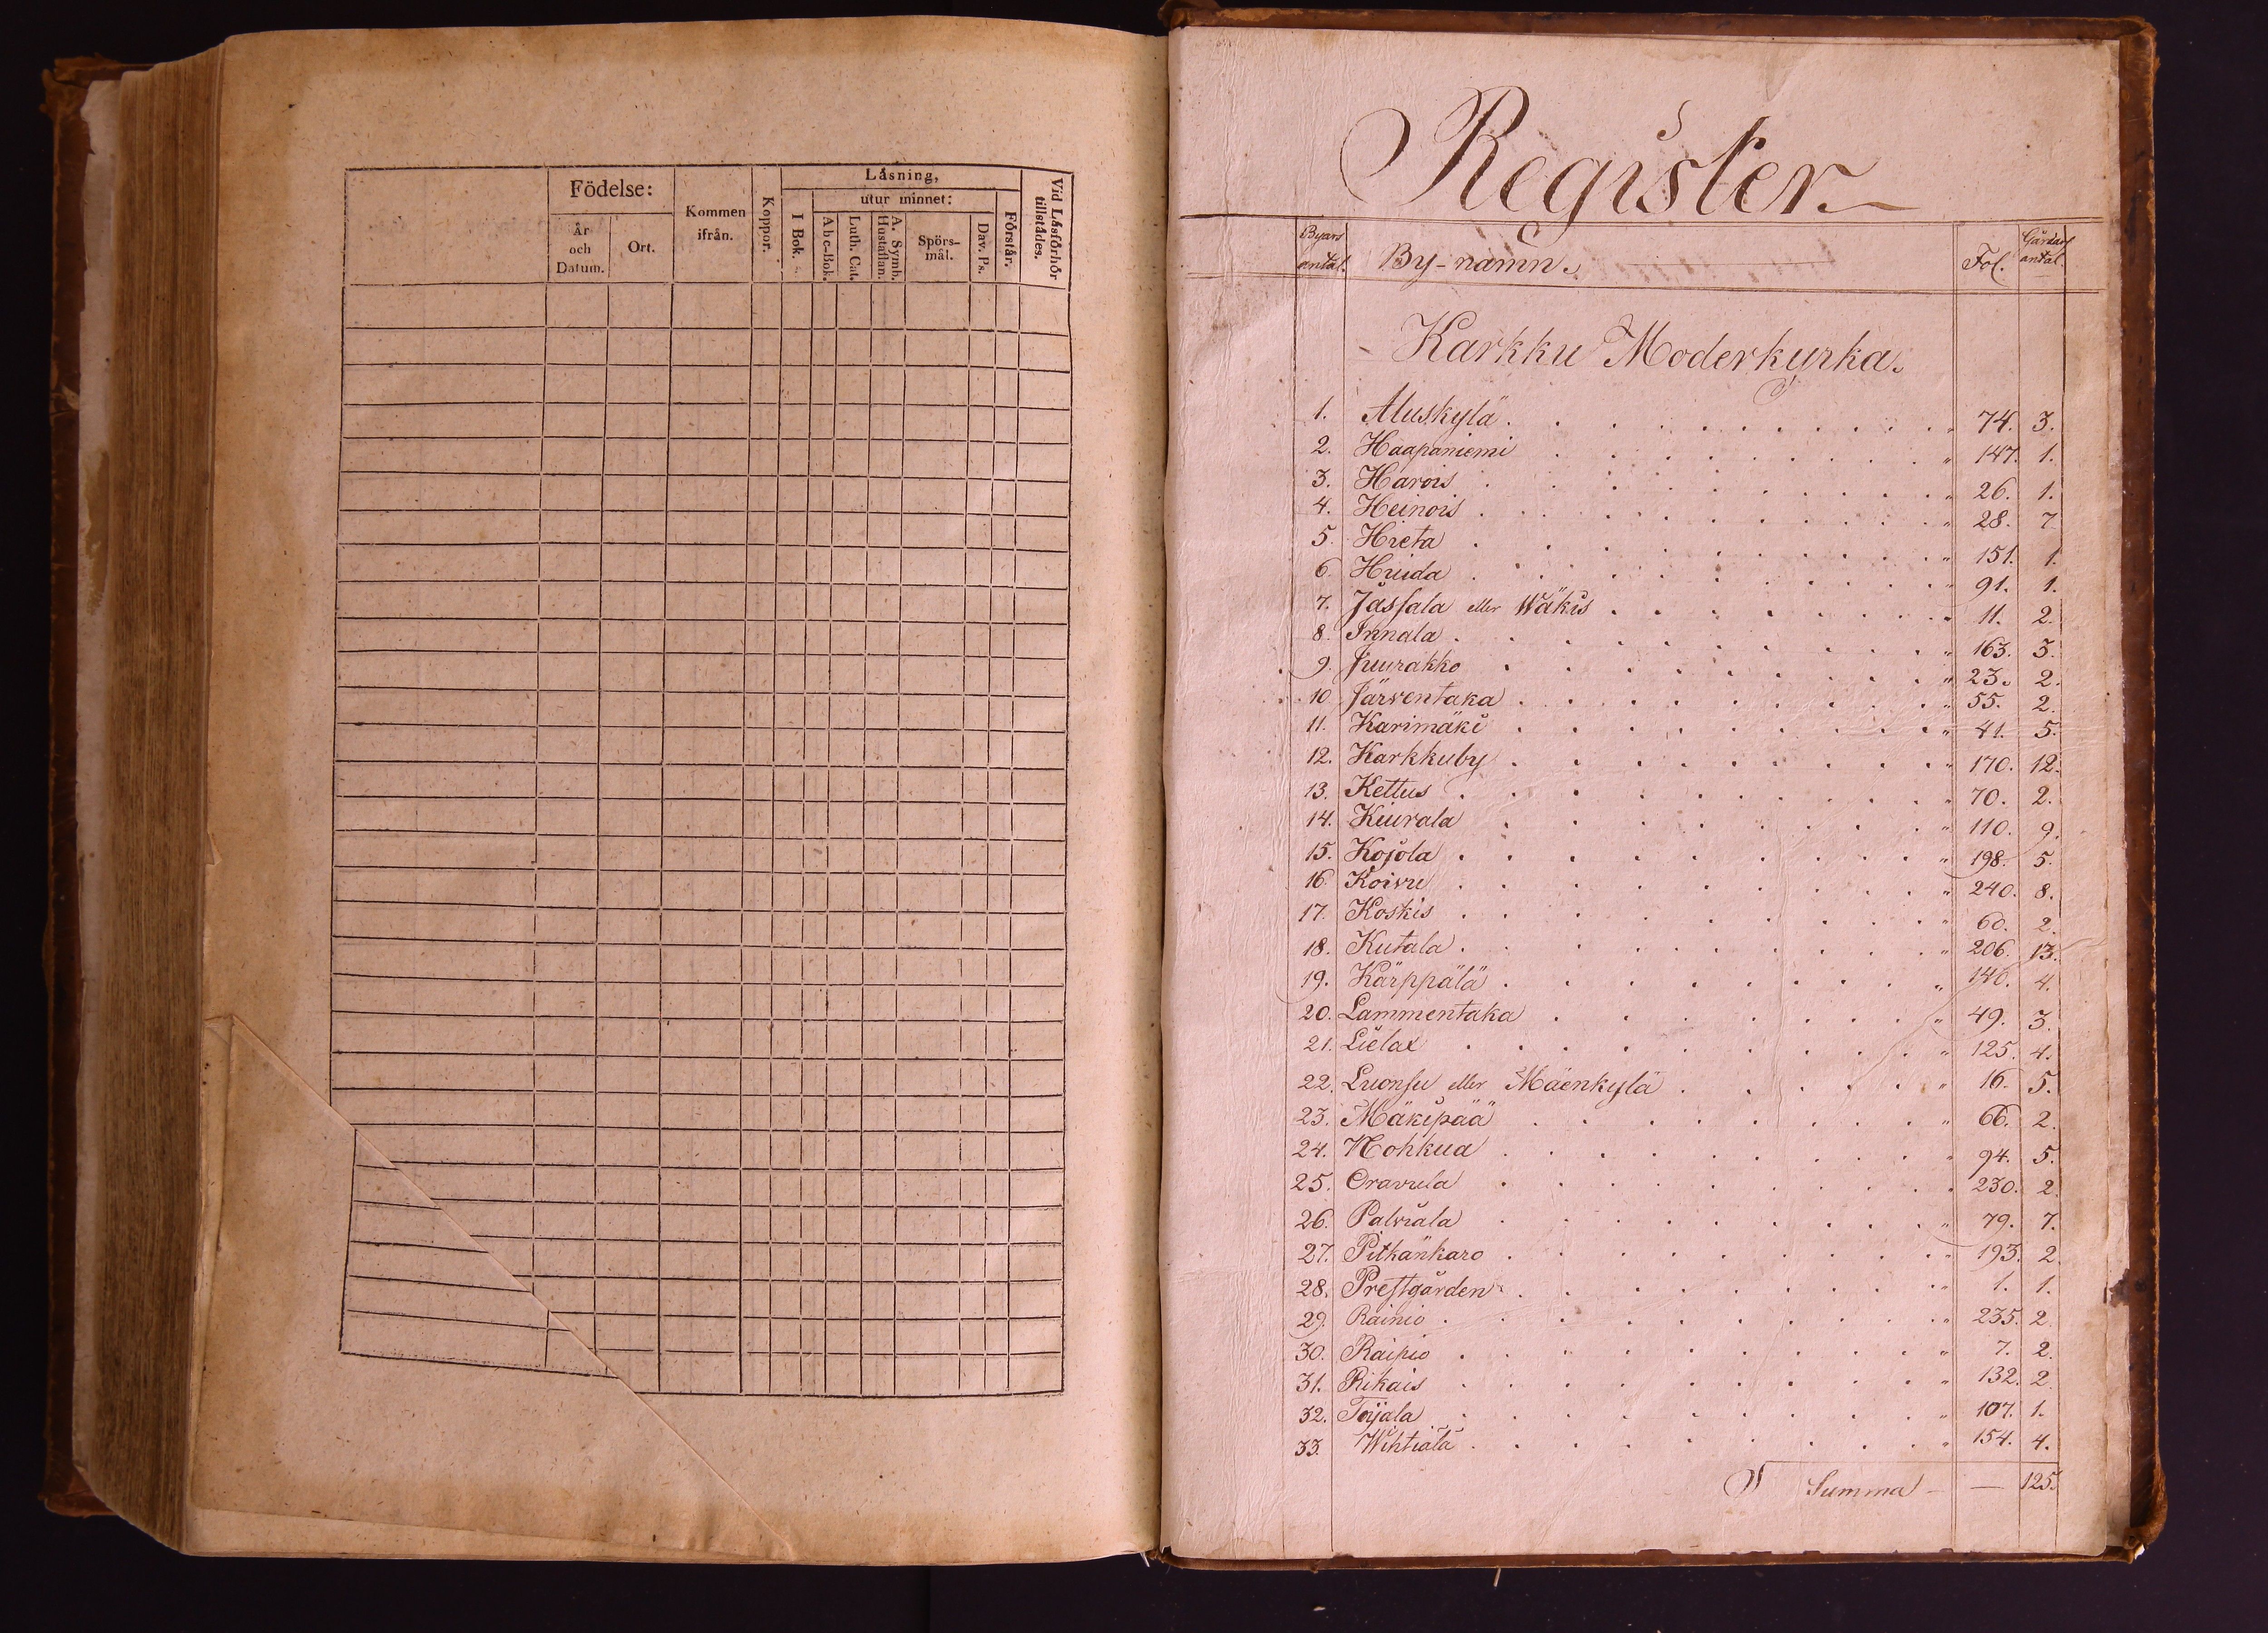 Födelse:
År och Datum.
Ort.
Kommen ifrån.
Koppor.
Låsning,
I Bok.
utur minnet:
Abc-Bok.
Luth. Cat.
A. Symb. Hustaflan.
Spörs-mål.
Dav. Ps.
Förstår.
Vid Läsförhör tillstådes.
Register
Byars antal. By-namn. Fol. Gårdars antal.
Karkku Moderkyrka.
1. Aluskylä . . . " 74. 3.
2. Haapaniemi . . . " 147. 1.
3. Harois . . . " 26. 1.
4. Heinois . . . " 28. 7
5. Hieta . . . " 151. 1.
6. Huida . . . " 91. 1.
7. Jassala eller Wäkis . . . " 11. 2.
8. Innala . . . " 163. 3.
9. Juurakko . . . " 23. 2.
10 Järventaka . . . " 55. 2.
11. Karimäki . . . " 41. 5.
12. Karkkuby . . . " 170. 12.
13. Kettus . . . " 70. 2.
14. Kiurala . . . " 110. 9.
15. Kojola . . . " 198. 5.
16. Koivu . . . " 240. 8.
17. Koskis . . . " 60. 2.
18. Kutala . . . " 206. 13.
19. Kärppälä . . . " 140. 4.
20. Lammentaka . . . " 49. 3.
21. Lielax . . . " 125. 4.
22. Luonsu eller Mäenkylä . . . " 16. 5.
23. Mäkipää . . . " 66. 2.
24. Nohkua . . . " 94. 5.
25. Oravula . . . 230. 2
26. Palviala . . . " 79. 7.
27. Pitkänkaro . . . " 193. 2
28. Prestgården . . . " 1. 1.
29. Rainio . . . " 235. 2.
30. Raipio . . . " 7. 2.
31. Rikais . . . " 132. 2.
32. Toijala . . . " 107. 1.
33. Wihtiälä . . . " 154. 4.
Summa - — 125.